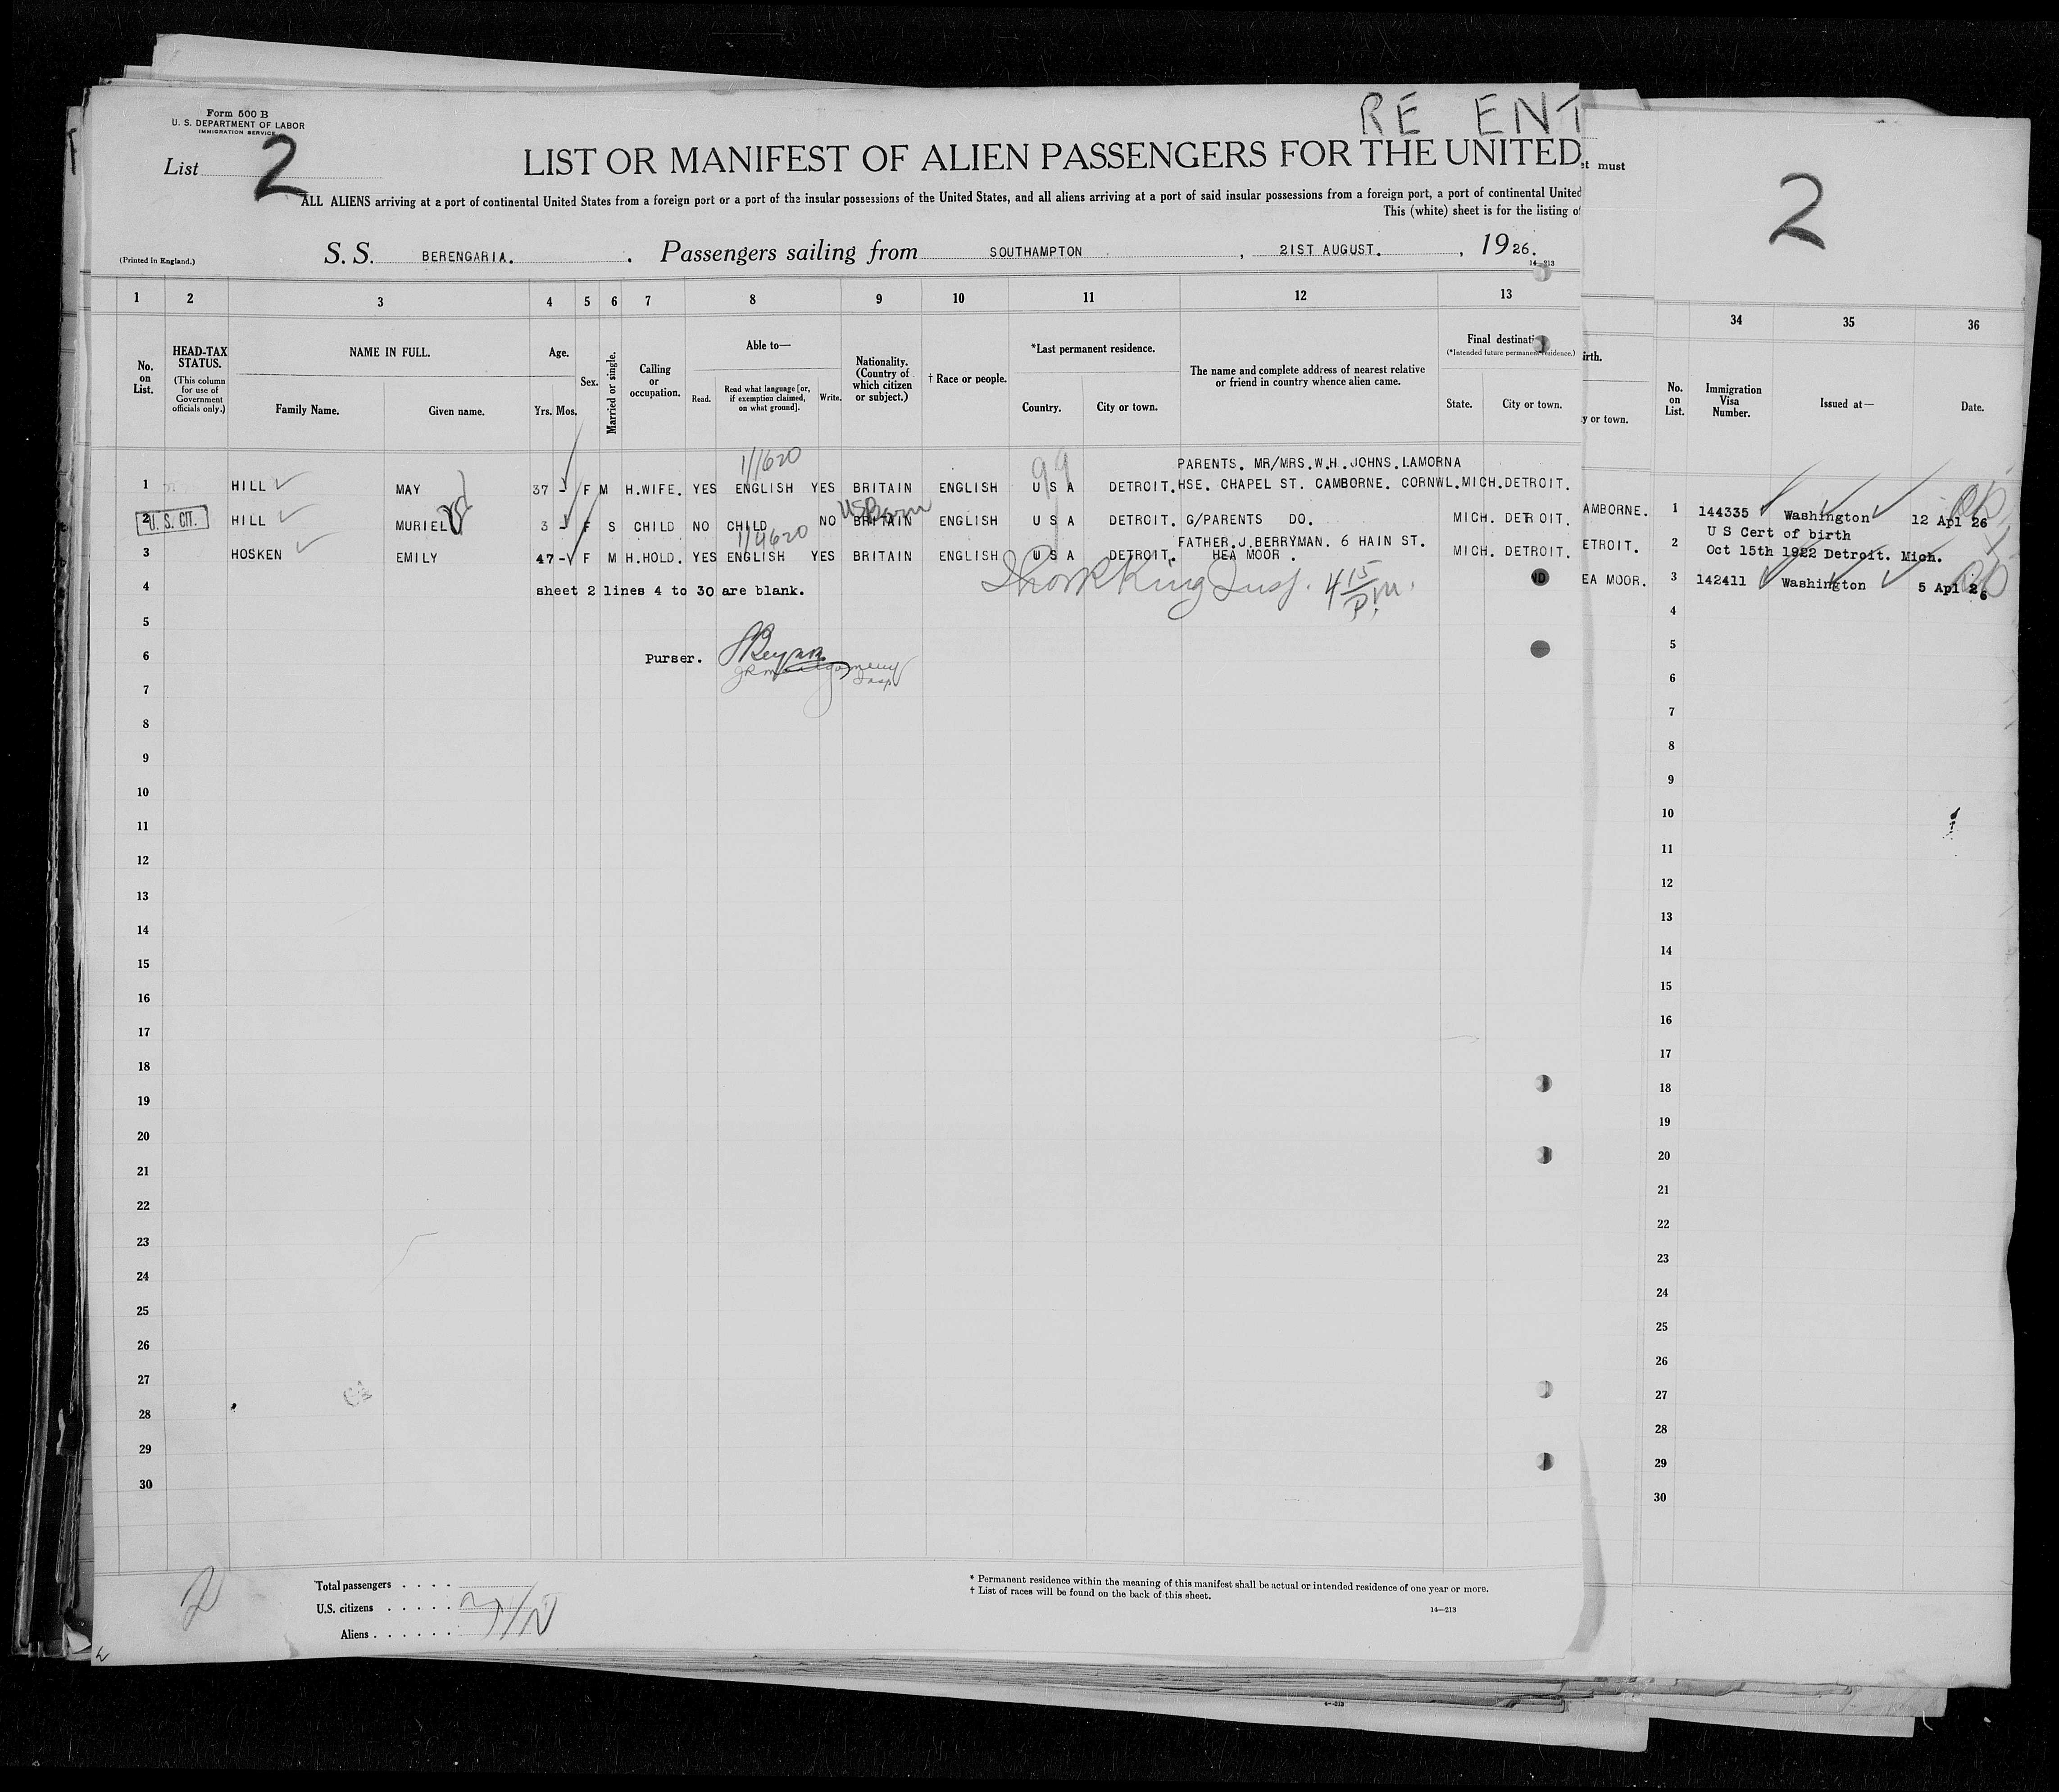 Form 500 B
U. S. DEPARTMENT OF LABOR
IMMIGRATION SERVICE
RE ENT
List 2
LIST OR MANIFEST OF ALIEN PASSENGERS FOR THE UNITED
et must
2
ALL ALIENS arriving at a port of continental United States from a foreign port or a port of the insular possessions of the United States, and all aliens arriving at a port of said insular possessions from a foreign port, a port of continental United
This (white) sheet is for the listing of
(Printed in England.) S. S. BERENGARIA. . Passengers sailing from SOUTHAMPTON , 21ST AUGUST. , 1926.
14—213
1 2 3 4 5 6 7 8 9 10 11 12 13 34 35 36
No. on List.
HEAD-TAX STATUS.
(This column for use of Government officials only.)
NAME IN FULL.
Family Name. Given name.
Age.
Yrs. Mos.
Sex.
Married or single.
Calling or occupation.
Able to—
Read. Read what language [or, if exemption claimed, on what ground]. Write.
Nationality. (Country of which citizen or subject.)
† Race or people.
*Last permanent residence.
Country. City or town.
The name and complete address of nearest relative or friend in country whence alien came.
Final destinati
(*Intended future permanent residence.)
State. City or town.
irth.
y or town.
No. on List.
Immigration Visa Number.
Issued at—
Date.
1/1620
99
PARENTS. MR/MRS.W.H.JOHNS.LAMORNA
1 HILL MAY 37 - F M H.WIFE. YES ENGLISH YES BRITAIN ENGLISH U S A DETROIT. HSE. CHAPEL ST. CAMBORNE. CORNWL. MICH. DETROIT.
AMBORNE. 1 144335 Washington 12 Apl 26
US Born
2 U. S. CIT. HILL MURIEL 3 - F S CHILD NO CHILD NO BRITAIN ENGLISH U S A DETROIT. G/PARENTS DO. MICH. DETROIT.
U S Cert of birth
ETROIT. 2 Oct 15th 1922 Detroit. Mich.
1/4620
FATHER.J.BERRYMAN. 6 HAIN ST.
3 HOSKEN EMILY 47 - F M H.HOLD. YES ENGLISH YES BRITAIN ENGLISH U S A DETROIT. HEA MOOR . MICH. DETROIT.
EA MOOR. 3 142411 Washington 5 Apl 26
4 sheet 2 lines 4 to 30 are blank.
King Insp. 4 15 P.M.
4
5
5
6 Purser.
6
Insp
7
7
8
8
9
9
10
10
11
11
12
12
13
13
14
14
15
15
16
16
17
17
18
18
19
19
20
20
21
21
22
22
23
23
24
24
25
25
26
26
27
27
28
28
29
29
30
30
2
Total passengers . . . .
U.S. citizens . . . . .
Aliens . . . . . .
* Permanent residence within the meaning of this manifest shall be actual or intended residence of one year or more.
† List of races will be found on the back of this sheet.
14—213